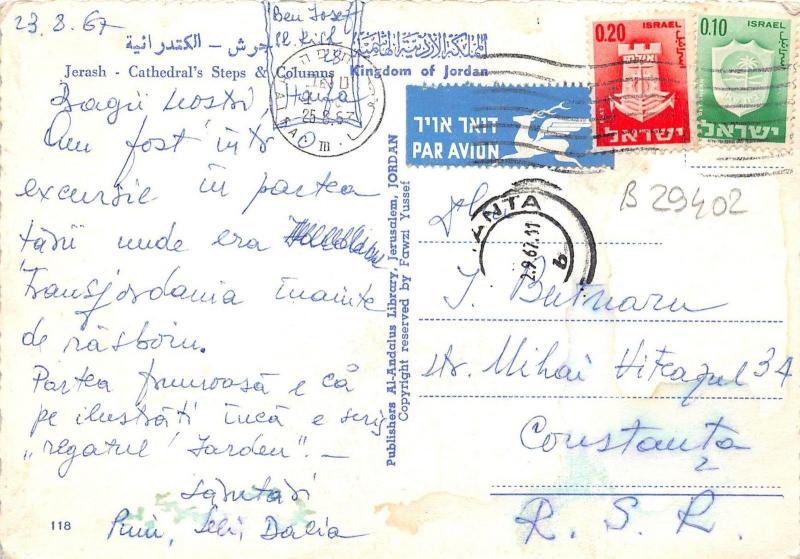 23.8.67
Ben Josef
جرش - الكتدرائية
المملكة الأردنية الهاشمية
Jerash - Cathedral's Steps & Columns Kingdom of Jordan
Dragii noștri,
Am fost într-o
excursie în partea
țării unde era
Transjordania înainte
de răsboiu.
Partea frumoasă e că
pe ilustrăți încă e scris
„regatul Jarden".-
Salutări
Puiu, Dalia
118
Publishers Al-Andalus Library, Jerusalem, JORDAN
Copyright reserved by Fawzi Yussef
דואר אויר
PAR AVION
0.20 ISRAEL
ישראל
0.10 ISRAEL
ישראל
25.8.67
ANTA
2.9.67.11
6
B 29402
J. Butnaru
str. Mihai Viteazul 34
Constanța
R. S. R.